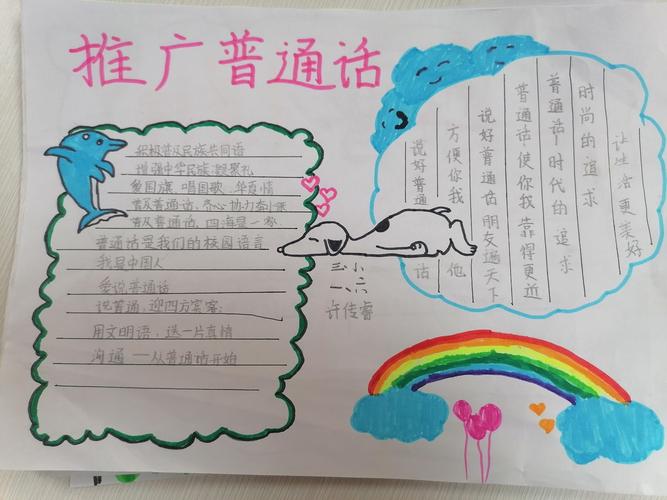 推广普通话
积极普及民族共同语
增强中华民族凝聚礼
爱国旗、唱国歌、
普及普通话、齐心协力奔小康
普及普通话、四海是一家
普通话是我们的校园语言
我是中国人
爱说普通话
说普通,迎四方宾客;
用文明语,送一片真情
沟通——从普通话开始
三小
一、六
许传睿
说好普通话
方便你我他
说好普通话 朋友遍天下
普通话,使你我靠得更近
普通话,时代的追求
时尚的追求
让生活更美好